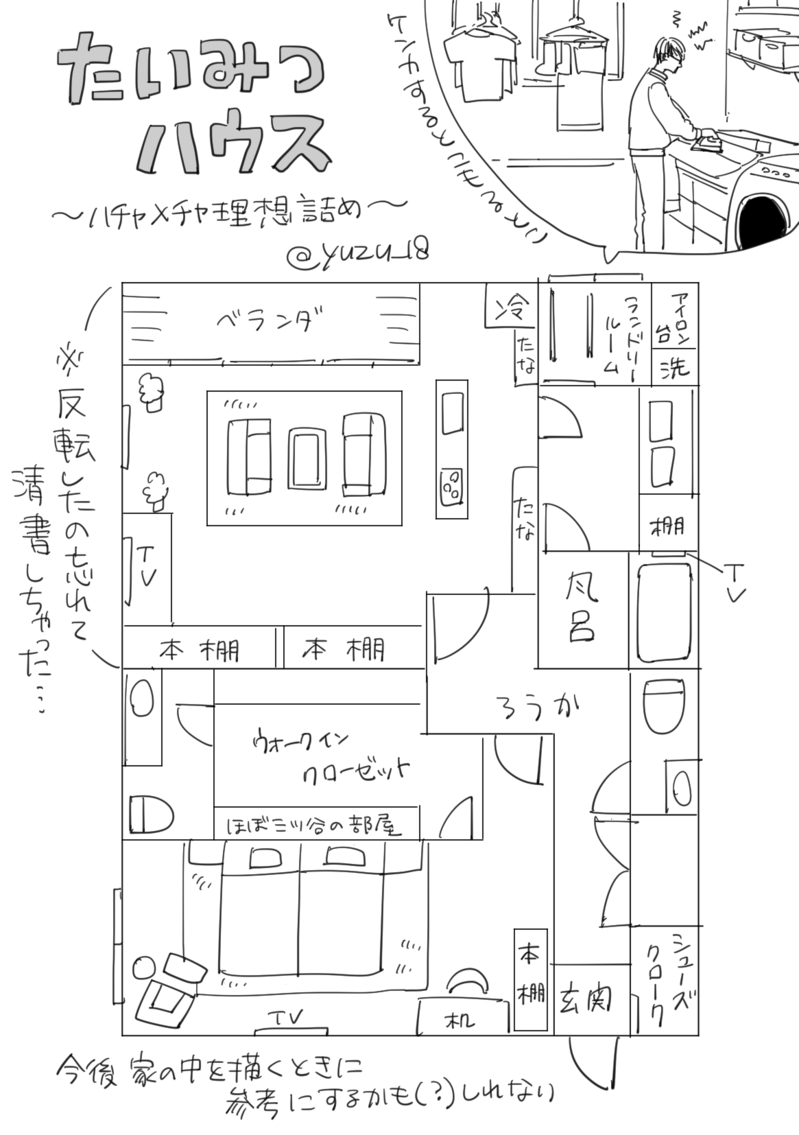 たいみつ
ハウス
〜ハチャメチャ理想詰め〜
@yuzu_18
ケンカすると
※反転したの忘れて
清書しちゃった…
ベランダ
冷
たな
ランドリー
ルーム
アイロン
台
洗
たな
棚
TV
TV
風
呂
本棚
本棚
ろうか
ウォークイン
クローゼット
ほぼ三ツ谷の部屋
本
棚
机
TV
玄関
シューズ
クローク
今後 家の中を描くときに
参考にするかも(?)しれない